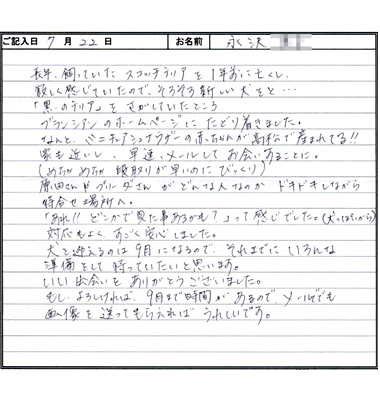 ご記入日 7月22日 お名前 永沢
長年、飼っていたスコッチテリアを1年前に亡くし、
寂しく感じていたので、そろそろ新しい犬をと…
「黒いテリア」をさがしていたところ
ブランシアンのホームページにたどり着きました。
なんと、ミニチュアシュナウザーの赤ちゃんが高松で産まれてる!!
家も近いし、早速、メールしてお会いすることに。
(めちゃめちゃ 段取りが早いのに びっくり)
原田さんや ブリーダーさんが どんな人なのか ドキドキしながら
待合せ場所へ。
「あれ!! どこかで見た事あるかも?」って感じでした。
対応もよく、すごく安心しました。
犬を迎えるのは 9月になるので、それまでに いろんな
準備をして 待っていたいと思います。
いい出会いを ありがとうございました。
もし、よろしければ、9月まで時間があるので、メールでも
画像を送ってもらえれば うれしいです。